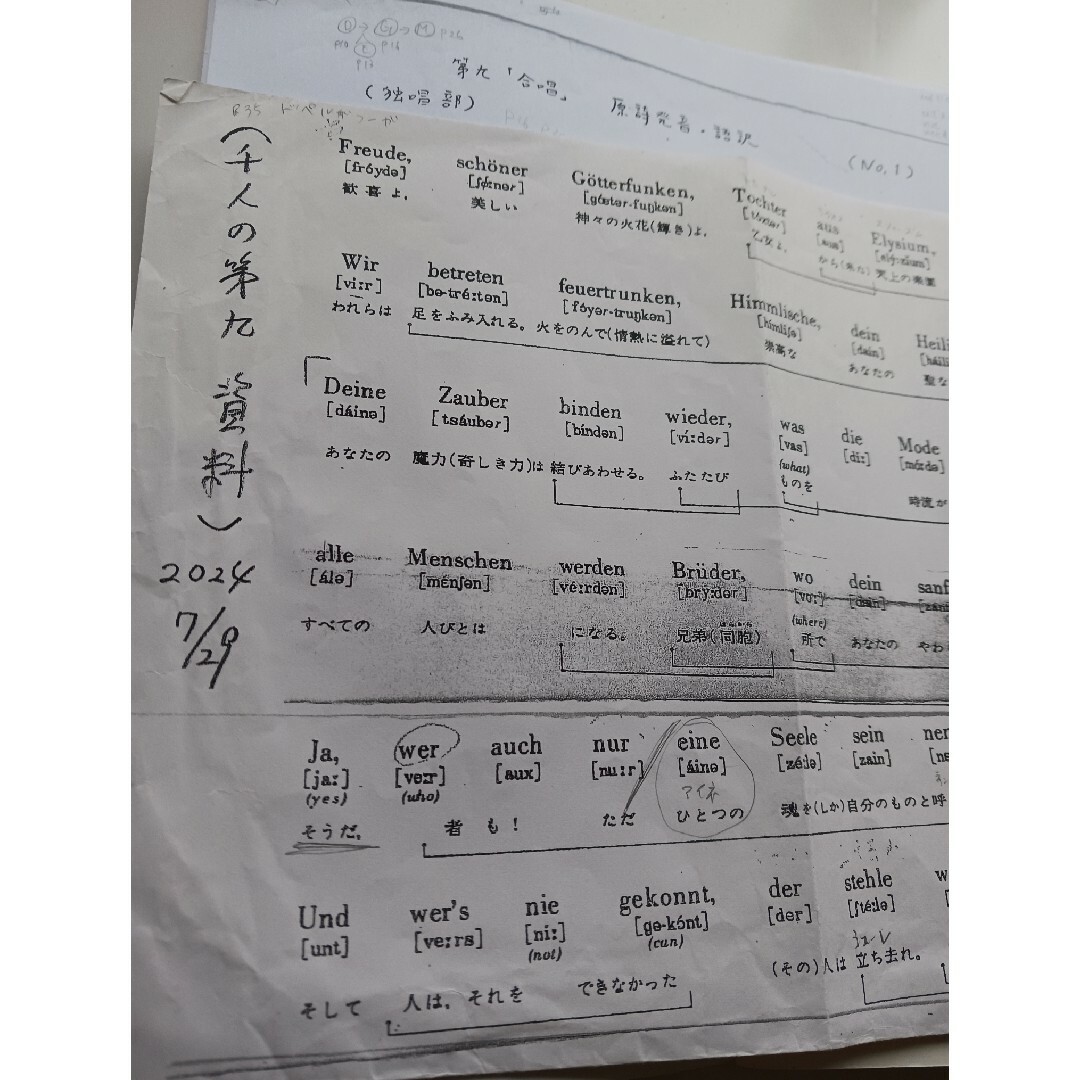 第九「合唱」 原詩発音・語訳
(独唱部)
(No, 1)
(千人の第九 資料)
2024
7/29
Freude, schöner Götterfunken, Tochter aus Elysium,
[fróydə] [ʃǿːnər] [gœ́tər-fuŋkən]
歓喜よ, 美しい 神々の火花(輝き)よ, 乙女よ, から(来た) 天上の楽園
Wir betreten feuertrunken, Himmlische, dein Heili
[viːr] [bə-tréːtən] [fɔ́yər-truŋkən] [hímliʃə] [dain] [háili
われらは 足をふみ入れる。 火をのんで(情熱に溢れて) 崇高な あなたの 聖な
Deine Zauber binden wieder, was die Mode
[dáinə] [tsáubər] [bíndən] [víːdər] [vas] [diː] [móːdə]
(what)
あなたの 魔力(奇しき力)は 結びあわせる。 ふたたび ものを 時流が
alle Menschen werden Brüder, wo dein sanf
[álə] [ménʃən] [véːrdən] [brýːdər] [voː] [dain]
(where)
すべての 人びとは になる。 兄弟(同胞) 所で あなたの やわ
Ja, wer auch nur eine Seele sein nen
[jaː] [veːr] [aux] [nuːr] [áinə] [zéːlə] [zain] [ne
(yes) (who) アイネ
そうだ, 者も! ただ ひとつの 魂を(しか)自分のものと呼
Und wer's nie gekonnt, der stehle w
[unt] [veːrs] [niː] [gə-kónt] [dər] [ʃtéːlə]
(not) (can)
そして 人は, それを できなかった (その)人は 立ち去れ。